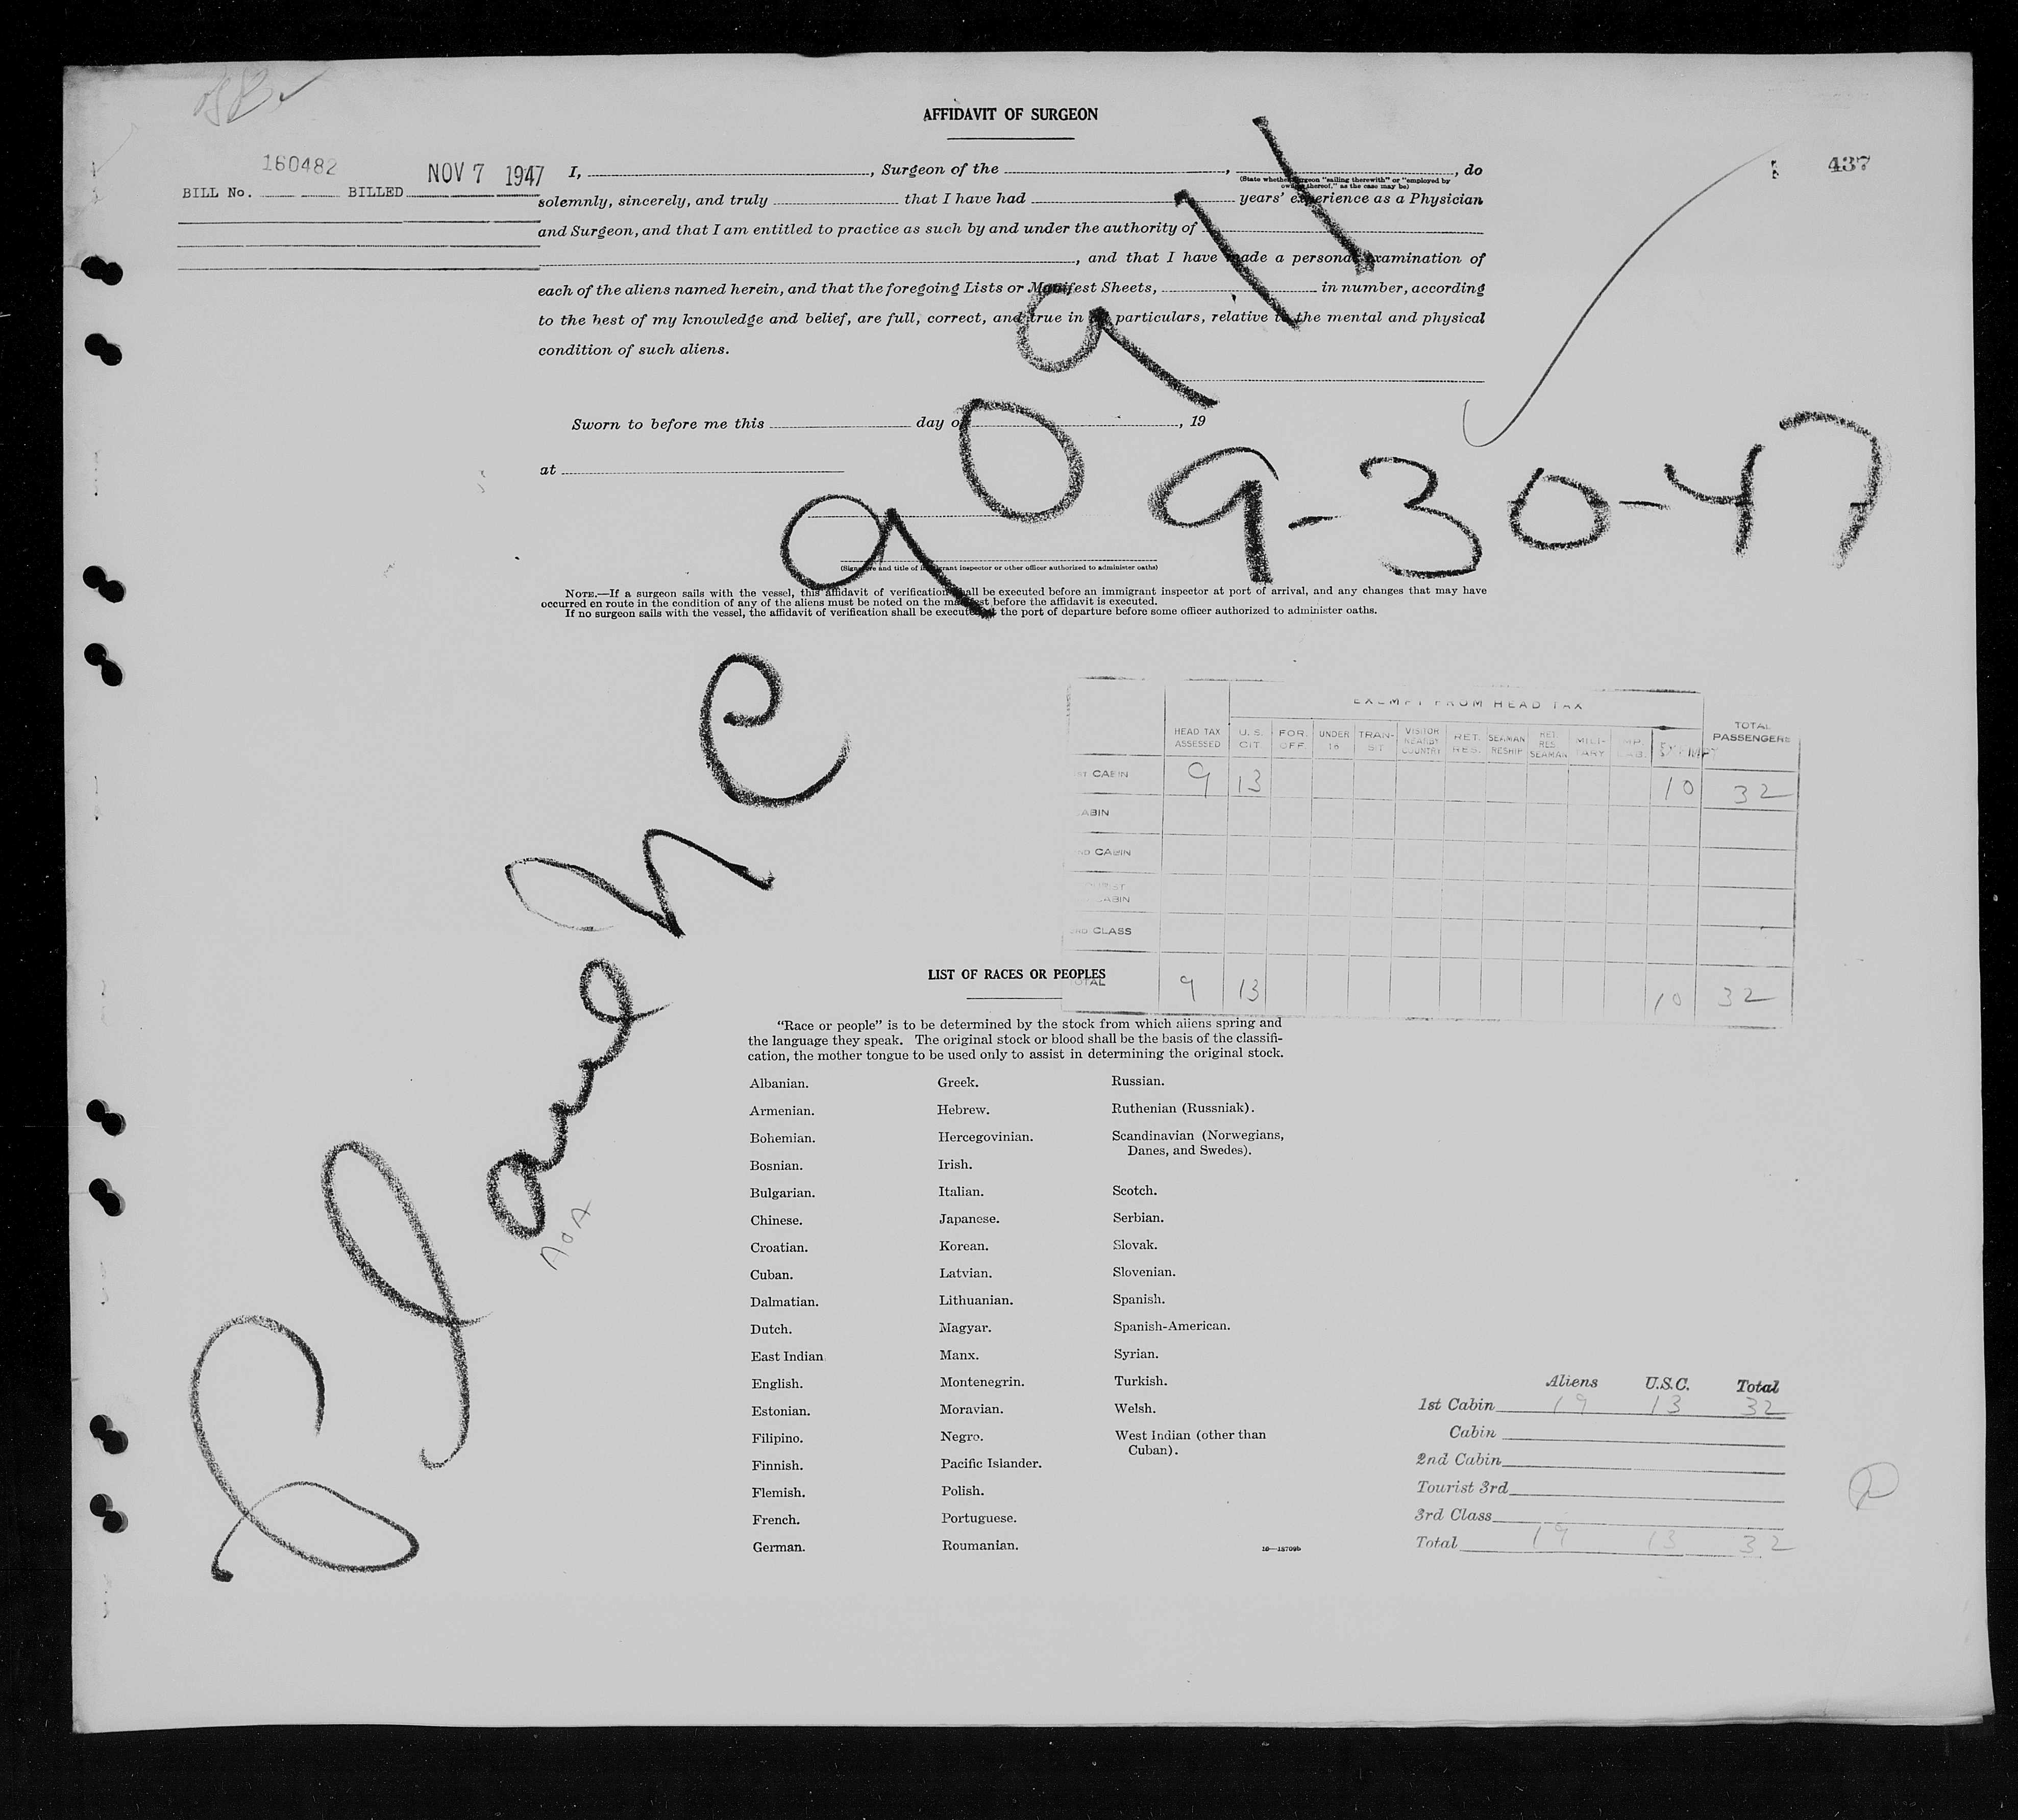 AFFIDAVIT OF SURGEON
437
160482
BILL No. BILLED NOV 7 1947
I, , Surgeon of the , , do
(State whether surgeon "sailing therewith" or "employed by
owners thereof," as the case may be)
solemnly, sincerely, and truly that I have had years' experience as a Physician
and Surgeon, and that I am entitled to practice as such by and under the authority of
, and that I have made a personal examination of
each of the aliens named herein, and that the foregoing Lists or Manifest Sheets, in number, according
to the best of my knowledge and belief, are full, correct, and true in all particulars, relative to the mental and physical
condition of such aliens.
Sworn to before me this day of , 19
at
(Signature and title of immigrant inspector or other officer authorized to administer oaths)
NOTE.—If a surgeon sails with the vessel, this affidavit of verification shall be executed before an immigrant inspector at port of arrival, and any changes that may have
occurred en route in the condition of any of the aliens must be noted on the manifest before the affidavit is executed.
If no surgeon sails with the vessel, the affidavit of verification shall be executed at the port of departure before some officer authorized to administer oaths.
Plane NC 90911
9-30-47
AOA
EXEMPT FROM HEAD TAX
HEAD TAX ASSESSED U.S. CIT. FOR. OFF. UNDER 16 TRANSIT VISITOR NEARBY COUNTRY RET. RES. SEAMAN RESHIP RET. RES. SEAMAN MILITARY EXEMPT TOTAL PASSENGERS
1ST CABIN 9 13 10 32
CABIN
2ND CABIN
TOURIST CABIN
3RD CLASS
TOTAL 9 13 10 32
LIST OF RACES OR PEOPLES
"Race or people" is to be determined by the stock from which aliens spring and
the language they speak. The original stock or blood shall be the basis of the classifi-
cation, the mother tongue to be used only to assist in determining the original stock.
Albanian.
Armenian.
Bohemian.
Bosnian.
Bulgarian.
Chinese.
Croatian.
Cuban.
Dalmatian.
Dutch.
East Indian
English.
Estonian.
Filipino.
Finnish.
Flemish.
French.
German.
Greek.
Hebrew.
Hercegovinian.
Irish.
Italian.
Japanese.
Korean.
Latvian.
Lithuanian.
Magyar.
Manx.
Montenegrin.
Moravian.
Negro.
Pacific Islander.
Polish.
Portuguese.
Roumanian.
Russian.
Ruthenian (Russniak).
Scandinavian (Norwegians,
Danes, and Swedes).
Scotch.
Serbian.
Slovak.
Slovenian.
Spanish.
Spanish-American.
Syrian.
Turkish.
Welsh.
West Indian (other than
Cuban).
16—18709b
Aliens U.S.C. Total
1st Cabin 19 13 32
Cabin
2nd Cabin
Tourist 3rd
3rd Class
Total 19 13 32